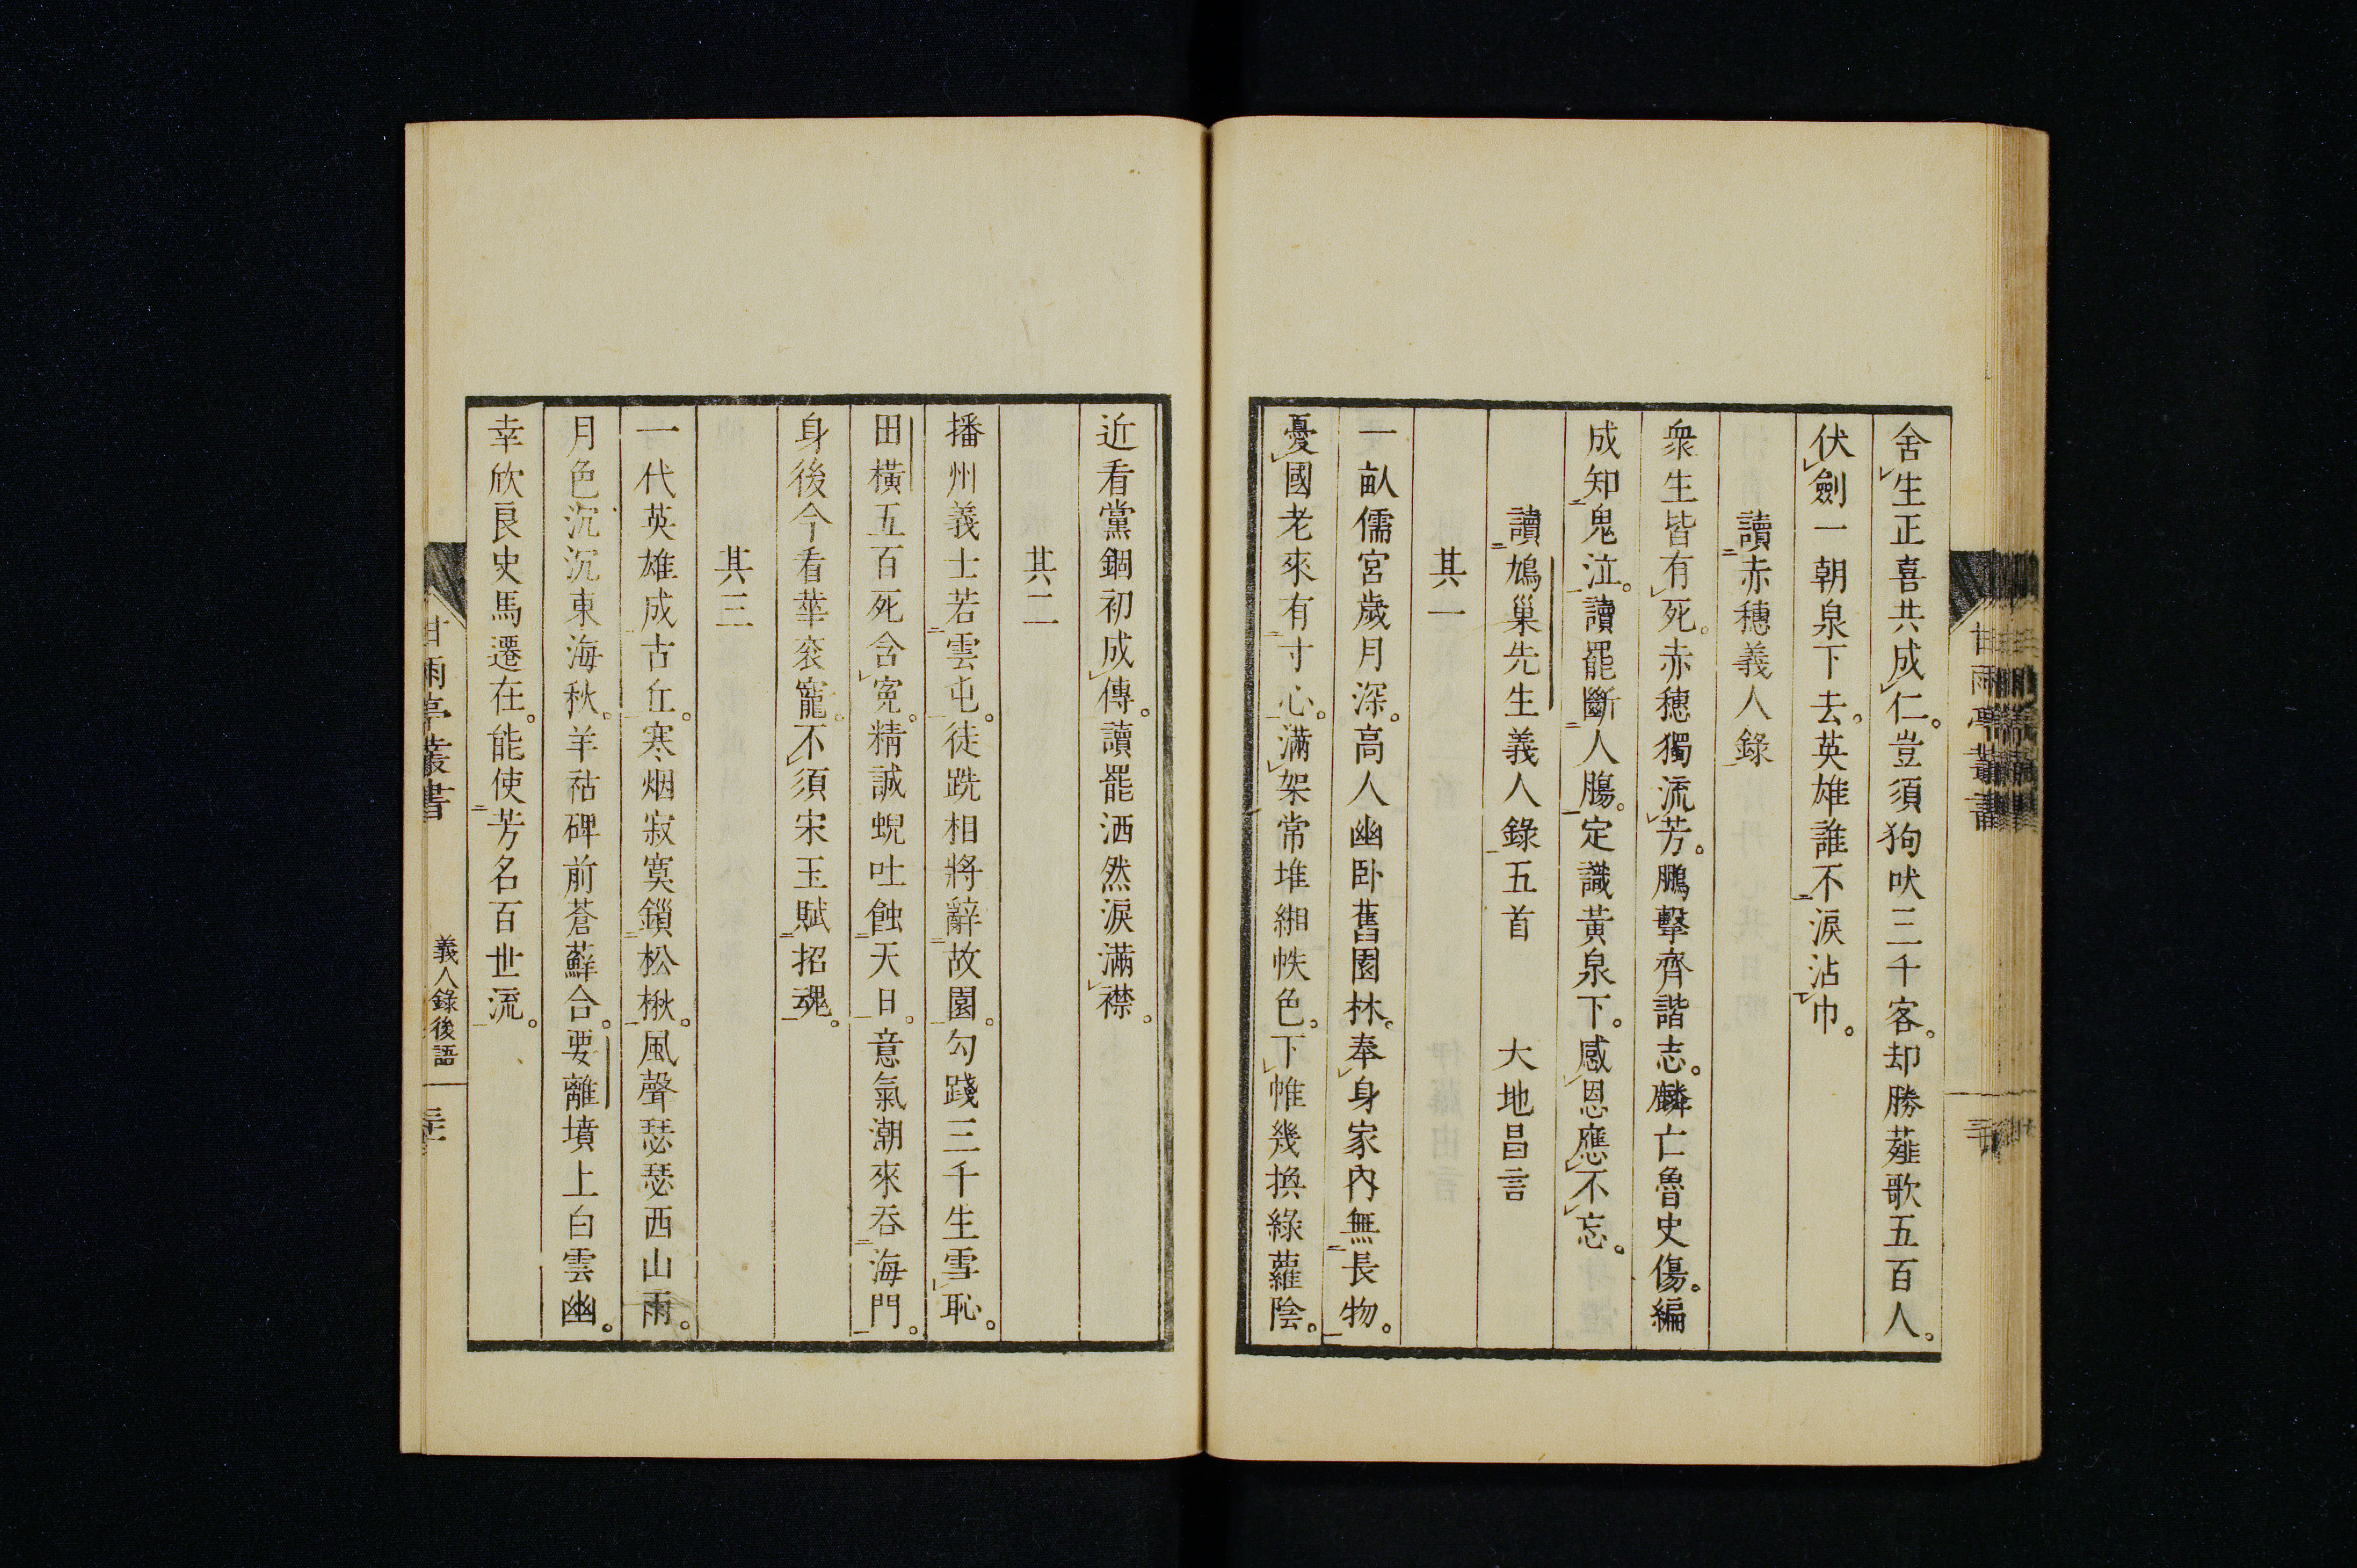 舍生正喜共成仁。豈須狗吠三千客。却勝薤歌五百人。
伏劍一朝泉下去。英雄誰不淚沾巾。
讀赤穗義人錄
衆生皆有死。赤穗獨流芳。鵬擊齊諧志。麟亡魯史傷。編
成知鬼泣。讀罷斷人膓。定識黃泉下。感恩應不忘。
讀鳩巢先生義人錄五首 大地昌言
其一
一畝儒宮歲月深。高人幽卧舊園林。奉身家內無長物。
憂國老來有寸心。滿架常堆緗帙色。下帷幾換綠蘿陰。
近看黨錮初成傳。讀罷洒然淚滿襟。
其二
播州義士若雲屯。徒跣相將辭故園。勾踐三千生雪恥。
田橫五百死含冤。精誠蜺吐蝕天日。意氣潮來吞海門。
身後今看華衮寵。不須宋玉賦招魂。
其三
一代英雄成古丘。寒烟寂寞鎻松楸。風聲瑟瑟西山雨。
月色沉沉東海秋。羊祜碑前蒼蘚合。要離墳上白雲幽。
幸欣良史馬遷在。能使芳名百世流。
甘雨亭叢書 義人錄後語
甘雨亭叢書